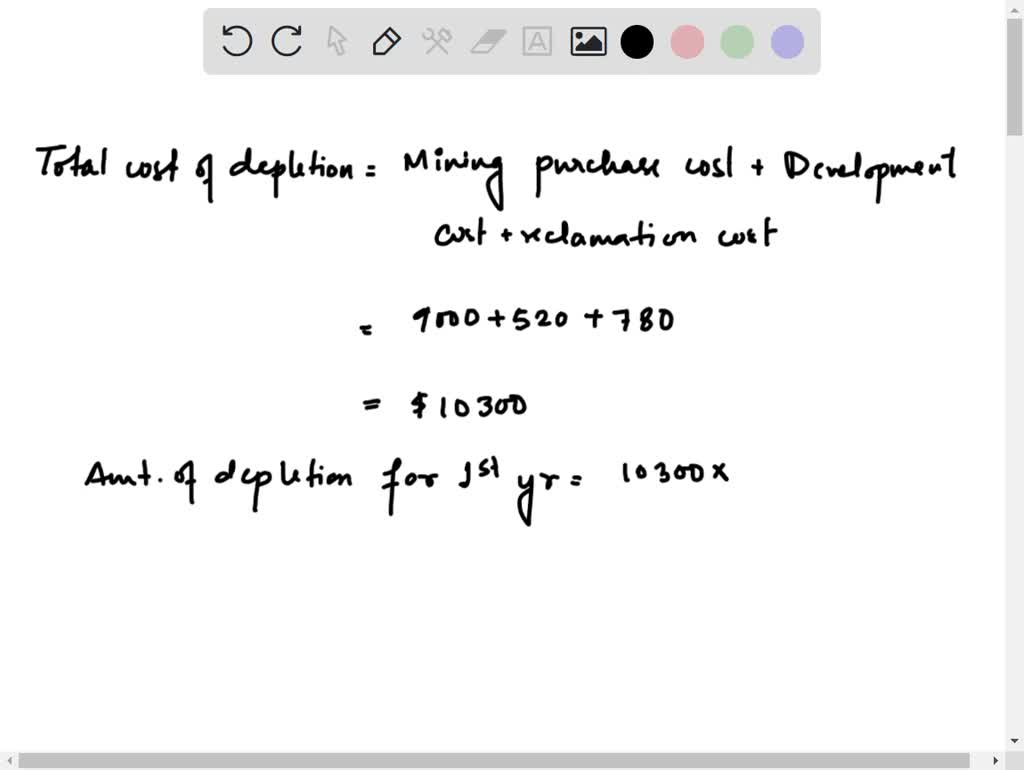 Total cost of depletion = Mining purchase cost + Development
cost + reclamation cost
= 9000 + 520 + 780
= $10300
Amt. of depletion for 1st yr = 10300 x